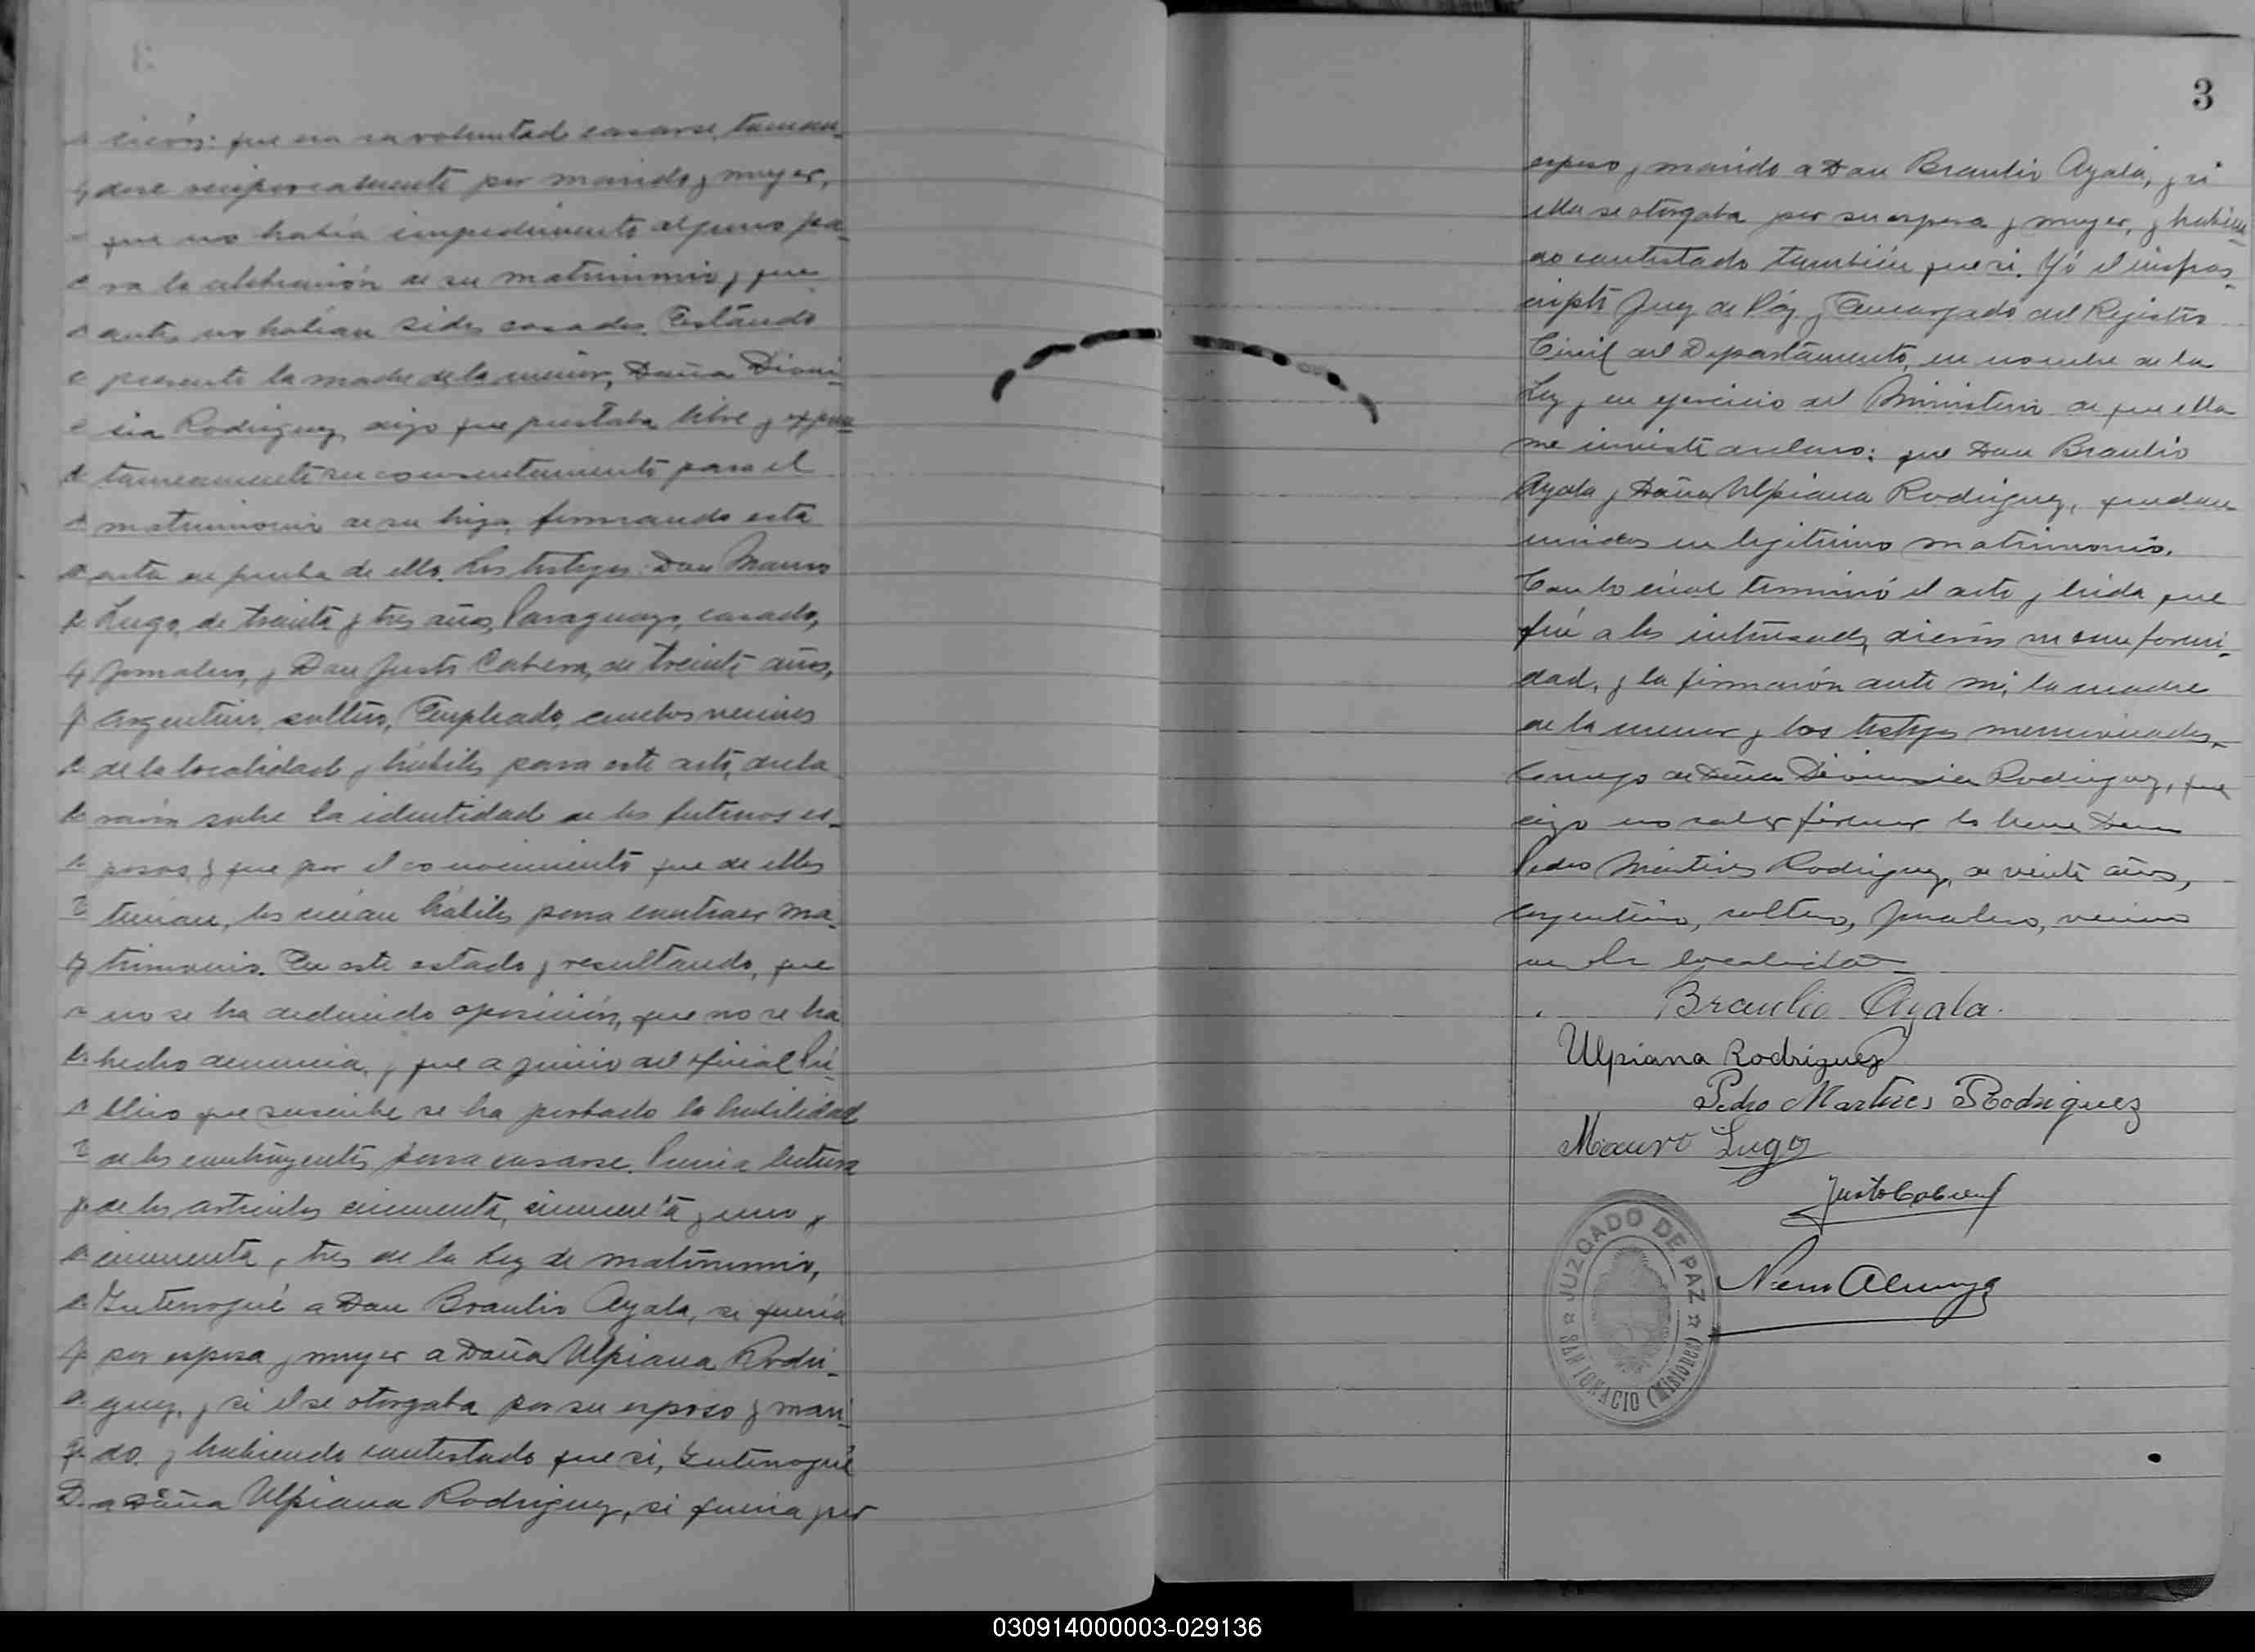 cieron: que era su voluntad casarse, toman-
dose reciprocamente por marido y mujer,
que no había impedimento alguno pa-
ra la celebración de su matrimonio y que
antes no habían sido casados. Estando
presente la madre de la menor, Doña Dioni-
sia Rodriguez, dijo que prestaba libre y expon-
taneamente su consentimiento para el
matrimonio de su hija, firmando esta
acta en prueba de ello. Los testigos: Don Mauro
Lugo, de treinta y tres años, Paraguayo, casado,
Jornalero, y Don Justo Cabrera, de treinta años,
Argentino, soltero, Empleado, ambos vecinos
de la localidad y hábiles para este acto, decla
raron sobre la identidad de los futuros es-
posos, y que por el conocimiento que de ellos
tenian, los creian hábiles para contraer ma-
trimonio. En este estado y resultando, que
no se ha deducido oposición, que no se ha
hecho denuncia, y que a juicio del oficial Pú-
blico que suscribe se ha probado la habilidad
de los contrayentes para casarse. Previa lectura
de los articulos cincuenta, cincuenta y uno y
cincuenta y tres de la Ley de matrimonio,
Interrogué a Don Braulio Ayala, si queria
por esposa y mujer a Doña Ulpiana Rodri-
guez, y si el se otorgaba por su esposo y mari-
do, y habiendo contestado que si, Interrogué
a Doña Ulpiana Rodriguez, si queria por
3
esposo y marido a Don Braulio Ayala, y si
ella se otorgaba por su esposa y mujer, y habien-
do contestado también que si. Yó el infras-
cripto Juez de Páz y Encargado del Rejistro
Civil del Departamento, en nombre de la
Ley y en ejercicio del Ministerio de que ella
me inviste declaro: que Don Braulio
Ayala y Doña Ulpiana Rodriguez, quedan
unidos en legitimo matrimonio.
Con lo cual terminó el acto y leida que
fué a los interesados, dieron su conformi-
dad, y la firmarón ante mi, la madre
de la menor y los testigos mencionados.
a ruego de Doña Dionisia Rodriguez, que
dijo no saber firmar lo hace Don
Pedro Mártires Rodriguez, de veinte años,
argentino, soltero, Jornalero, vecino
de la localidad
Braulio Ayala.
Ulpiana Rodríguez
Pedro Martires Rodriguez
Mauro Lugo
Justo Cabrera
JUZGADO DE PAZ
SAN IGNACIO (Misiones)
030914000003-029136